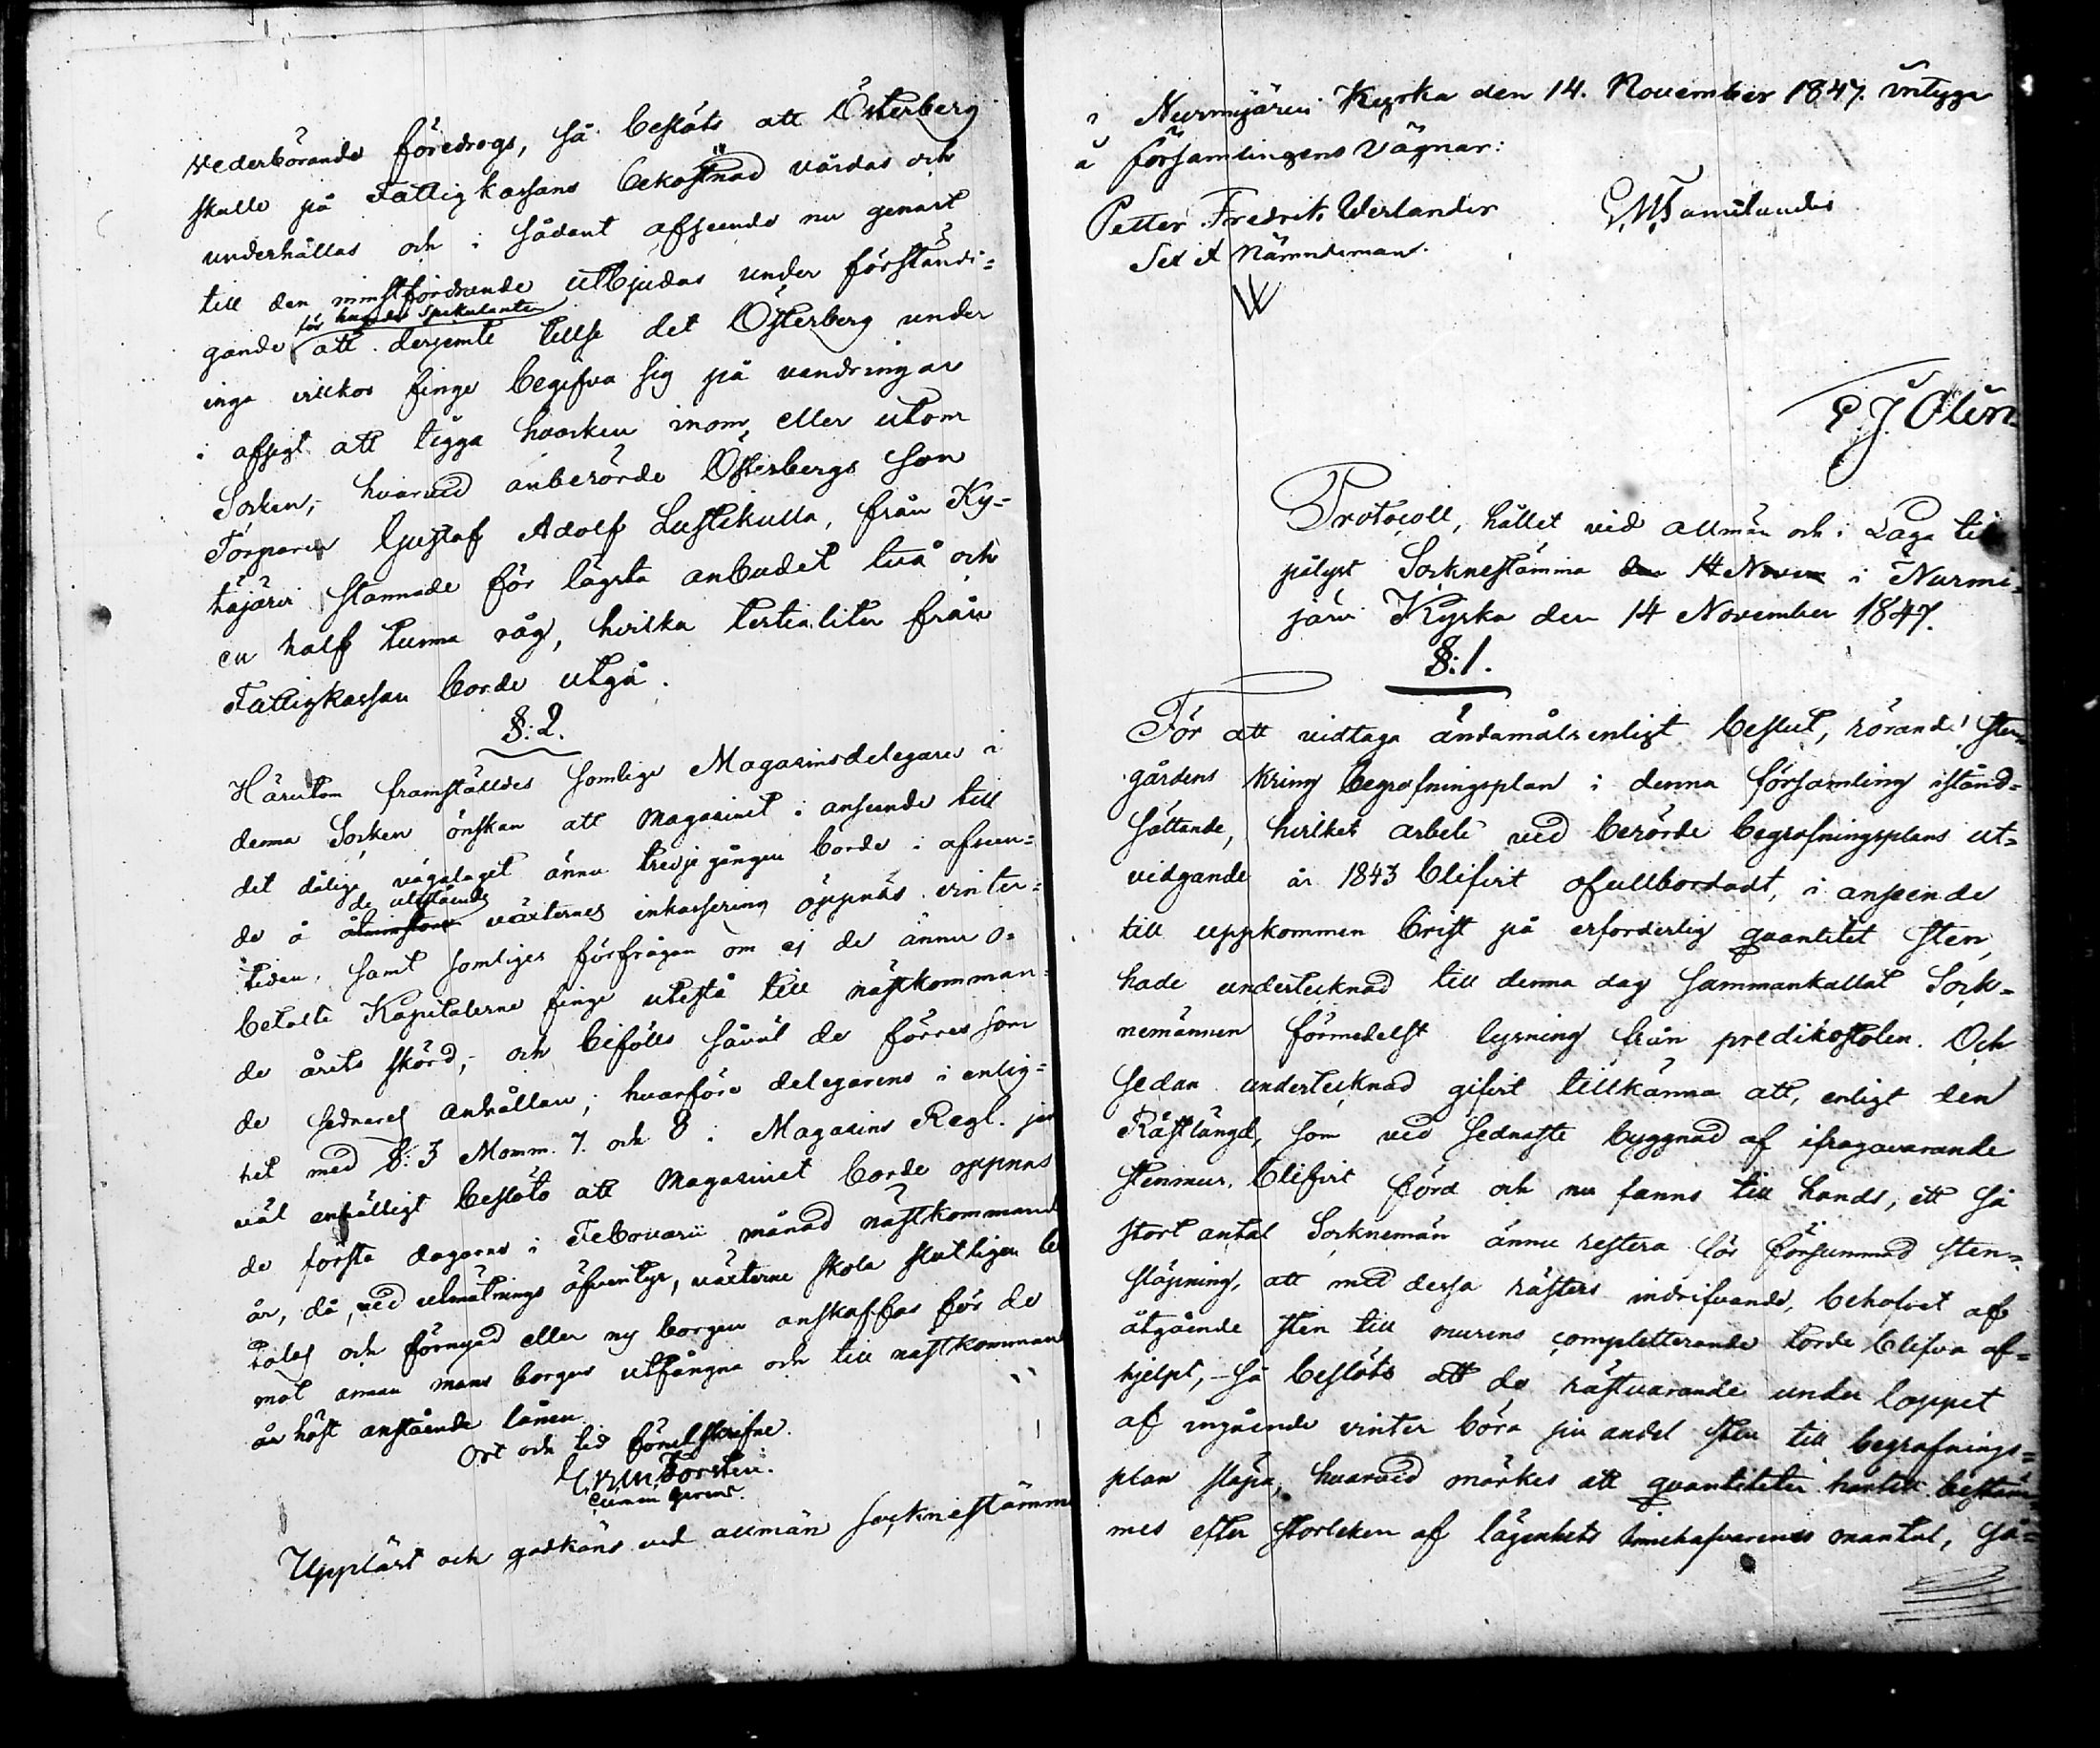 vederbörande föredrogs, så beslöts att Österberg
skulle på Fattigkassans bekostnad vårdas och
underhållas och i sådant afseende nu genast
till den minstfordrande utbjudas under förständi-
gande för hugade spekulanter att derjemte tillse det Österberg under
inga villkor finge begifva sig på vandringar
i afsigt att tigga hvarken inom eller utom
Socken; hvarvid anberörde Österbergs Son
Torparen Gustaf Adolf Lustikulla, från Ky-
täjärvi stannade för lägsta anbudet två och
en half tunna råg, hvilka tertialiter från
Fattigkassan borde utgå.
§: 2.
Härutom framställdes somlige Magasinsdelegares i
denna Socken önskan att magasinet i anseende till
det dåliga väglaget ännu tredje gången borde i afseen-
de å de utestående växternes inkassering öppnas vinter-
tiden, samt somliges förfrågan om ej de ännu o-
betalte Kapitalerne finge utestå till nästkomman-
de årets skörd; och bifölls såväl de förres som
de sednares anhållan; hvarföre delegarene i enlig-
het med §: 3 Momm. 7. och 8 i Magasins Regl. jem
väl enhälligt beslöto att Magasinet borde öppnas
de första dagarne i Februarii månad nästkommand
år, då, vid utmätnings äfventyr, växterne skola slutligen be
talas och förnyad eller ny borgen anskaffas för de
mot annan mans borgen utfångna och till nästkommand
år höst anstående lånen.
Ort och tid förutskrifne.
Forsten.
Upplärt och godkäns vid allmän socknestämm
i Nurmijärvi Kyrka den 14. November 1847. intyga
å församlingens vägnar:
Petter Fredrik Werlander
Nämndeman.
P. J. Olin
Protocoll, hållet vid allmän och i Laga tid
pålyst Socknestämma den 14 Novem i Nurmi-
järvi Kyrka den 14 November 1847.
§: 1.
För att vidtaga ändamålsenligt beslut, rörande sten-
gårdens kring begrafningsplan i denna församling istånd-
sättande, hvilket arbete vid berörde begrafningsplans ut-
vidgande år 1843 blifvit ofullbordadt, i anseende
till uppkommen brist på erforderlig quantitet sten,
hade undertecknad till denna dag sammankallat Sock-
nemännen förmedelst lysning från predikostolen. Och
sedan undertecknad gifvit tillkänna att, enligt den
Rästlängd, som vid sednaste byggnad af ifragavarande
stenmur blifvit förd och nu fanns till hands, ett så
stort antal Socknemän ännu restera för försummad sten-
släpning, att med dessa rästers indrifvande, behofvet af
åtgående sten till murens completterande torde blifva af-
hjelpt, - så beslöts att de rästvarande under loppet
af ingående vinter böra sin andel sten till begrafnings-
plan släpa, hvarvid märkes att quantiteten härtill bestäm-
mes efter storleken af lägenhets innehafvarenes mantal, så-